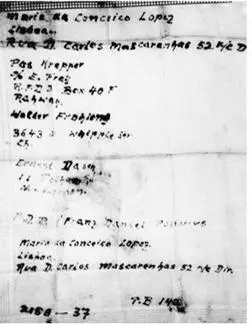 Maria da Conceico Lopez
Lisboa
Rua D. Carlos Mascaranhas 52 R/c D
Pas Krepper
c/o E. Frey
R.F.D 2 Box 40 F
Rahway
Walder Frohling
3643 Whipple Str.
Ch.
Ernest
11
(Franz Daniel Pastorius
Maria da Conceico Lopez.
Lisboa.
Rua D. Carlos Mascaranhas 52 R/c Dir.
P.B 140
2158 — 37